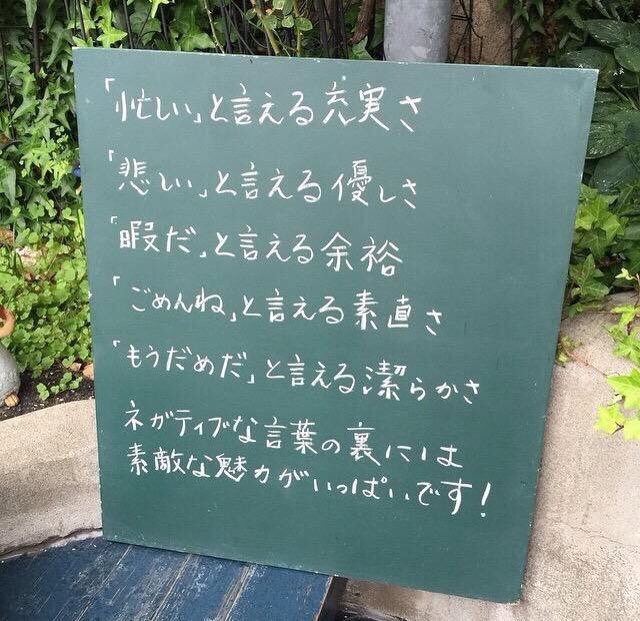 「忙しい」と言える充実さ
「悲しい」と言える優しさ
「暇だ」と言える余裕
「ごめんね」と言える素直さ
「もうだめだ」と言える潔らかさ
ネガティブな言葉の裏には
素敵な魅力がいっぱいです!